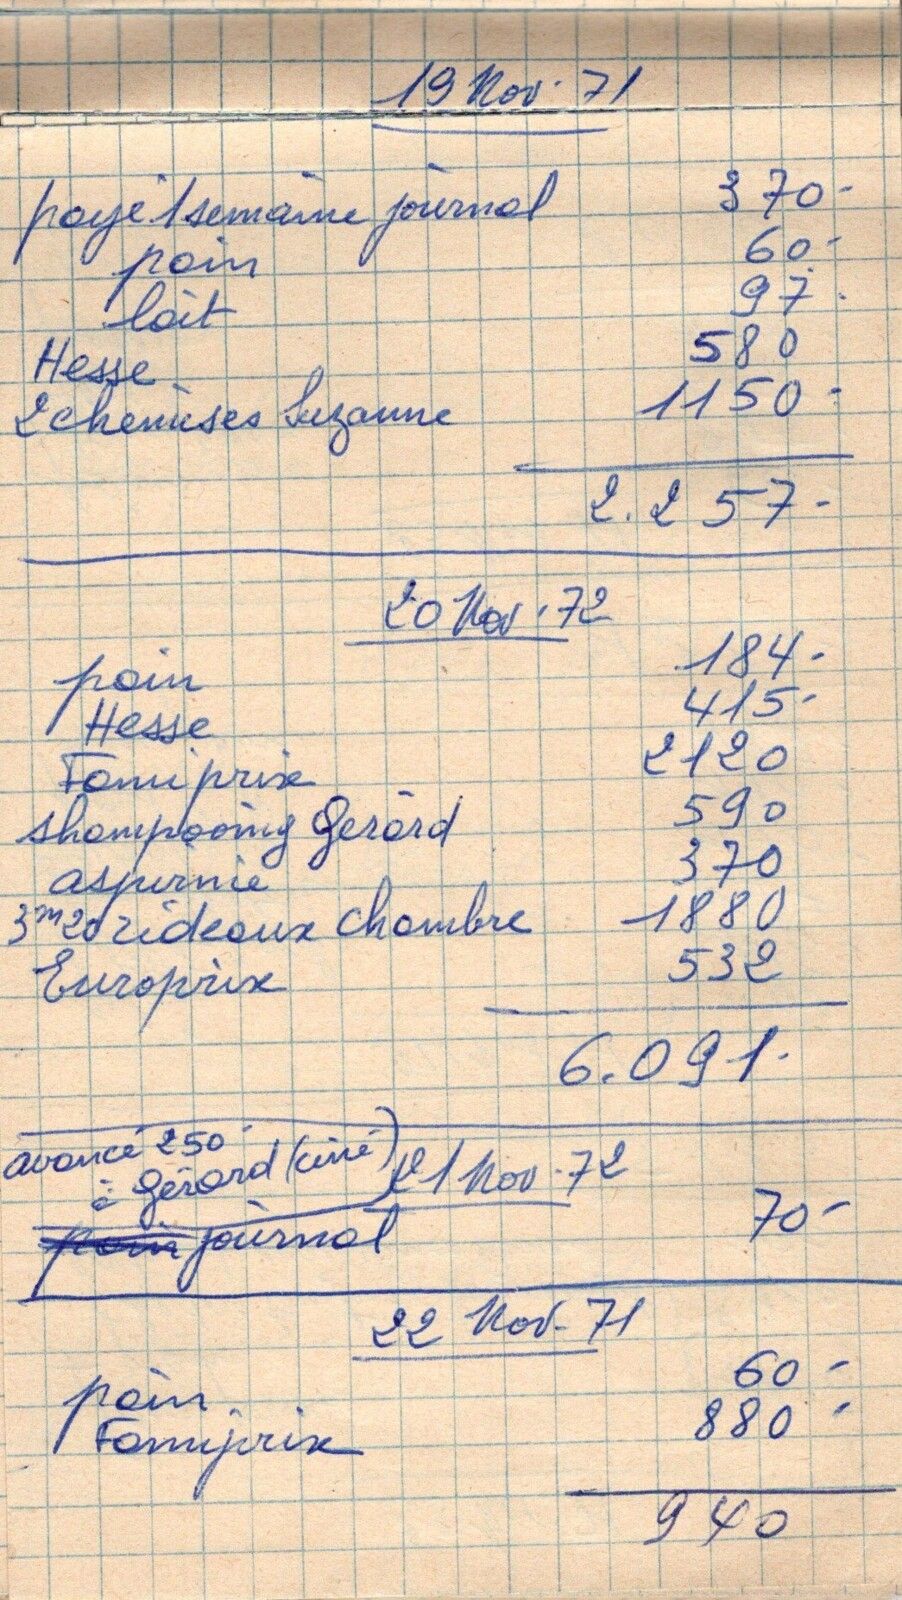 19 Nov. 71
payé 1 semaine journal 370-
pain 60-
lait 97.
Hesse 580
2 chemises Suzanne 1150-
2.257-
20 Nov. 72
pain 184-
Hesse 415-
Famiprix 2120
shampooing Gérard 590
aspirnie 370
3m20 rideaux chambre 1880
Europrix 532
6.091.
avancé 250
à Gérard (ciné)
21 Nov. 72
pain journal 70-
22 Nov. 71
pain 60-
Famiprix 880-
940